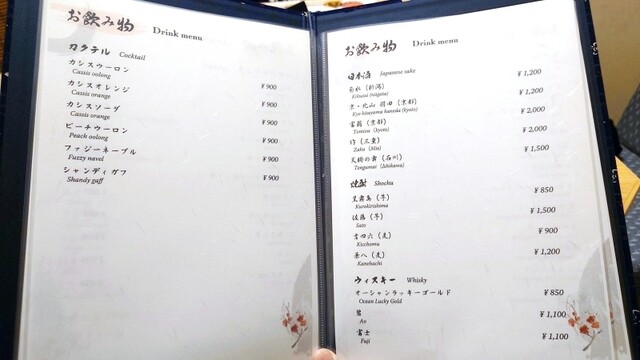 お飲み物 Drink menu
カクテル Cocktail
カシスウーロン
Cassis oolong
¥900
カシスオレンジ
Cassis orange
¥900
カシスソーダ
Cassis orange
¥900
ピーチウーロン
Peach oolong
¥900
ファジーネーブル
Fuzzy navel
¥900
シャンディガフ
Shandy gaff
¥900
お飲み物 Drink menu
日本酒 Japanese sake
菊水(新潟) ¥1,200
Kikusui (Niigata)
京・北山 羽田(京都) ¥1,200
(kyoto)
(京都) ¥2,000
(kyoto)
作(三重) ¥2,000
Zaku (Mie)
天狗舞(石川) ¥1,500
Tengumai (Ishikawa)
焼酎 Shochu
黒霧島(芋) ¥850
Kurokirishima
佐藤(芋) ¥1,500
Sato
吉四六(麦) ¥900
Kicchomu
兼八(麦) ¥1,200
Kanehachi
ウィスキー Whisky
オーシャンラッキーゴールド ¥850
Ocean Lucky Gold
碧 ¥1,100
Ao
富士 ¥1,100
Fuji